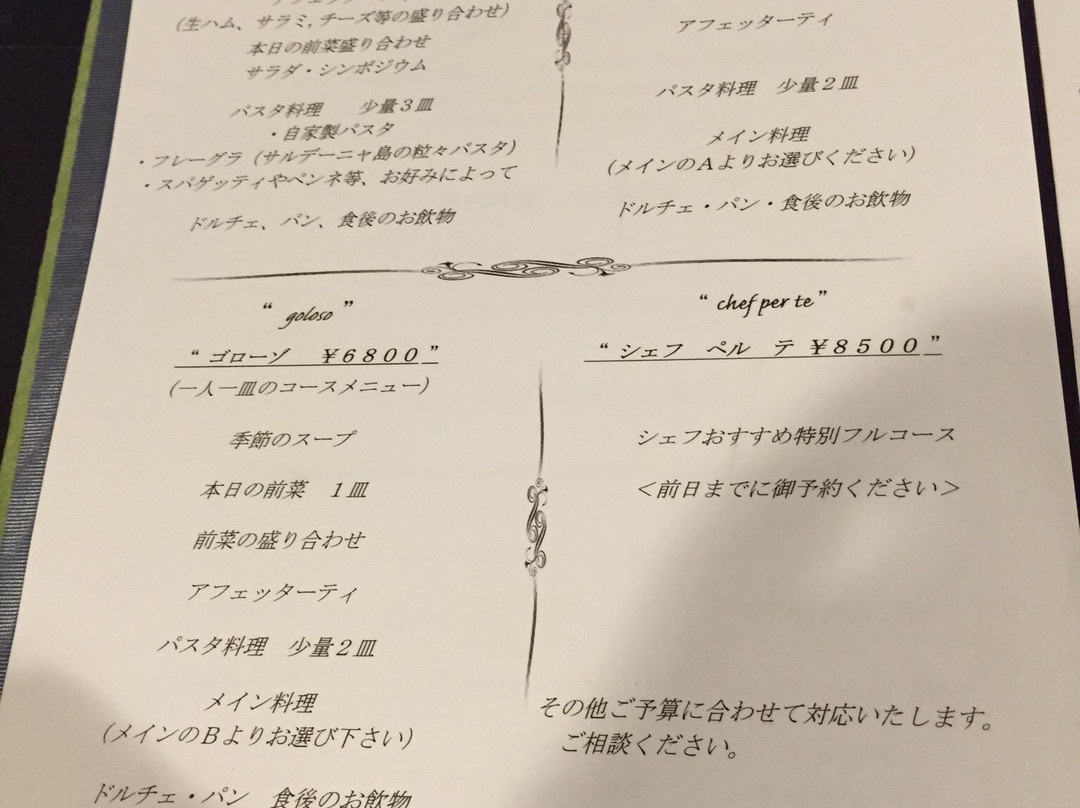 (生ハム、サラミ, チーズ等の盛り合わせ)
本日の前菜盛り合わせ
サラダ・シンポジウム
パスタ料理　少量３皿
・自家製パスタ
・フレーグラ (サルデーニャ島の粒々パスタ)
・スパゲッティやペンネ等、お好みによって
ドルチェ、パン、食後のお飲物
アフェッターティ
パスタ料理　少量２皿
メイン料理
(メインのＡよりお選びください)
ドルチェ・パン・食後のお飲物
“ goloso ”
“ ゴローゾ　￥６８００ ”
(一人一皿のコースメニュー)
季節のスープ
本日の前菜　１皿
前菜の盛り合わせ
アフェッターティ
パスタ料理　少量２皿
メイン料理
(メインのＢよりお選び下さい)
ドルチェ・パン　食後のお飲物
“ chef per te ”
“ シェフ　ペル　テ ￥８５００ ”
シェフおすすめ特別フルコース
＜前日までに御予約ください＞
その他ご予算に合わせて対応いたします。
ご相談ください。